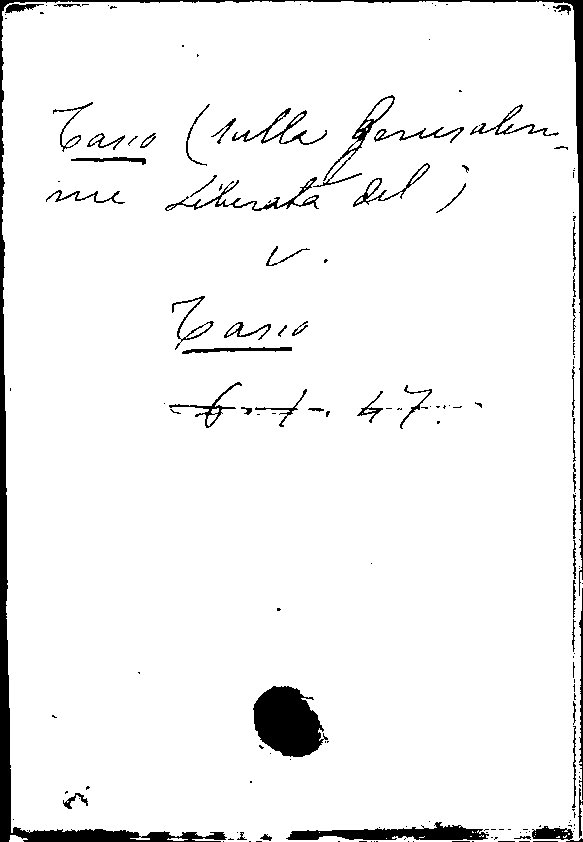 Tasso (sulla Gerusalem-
me Liberata del)
v.
Tasso
6. 1. 47.